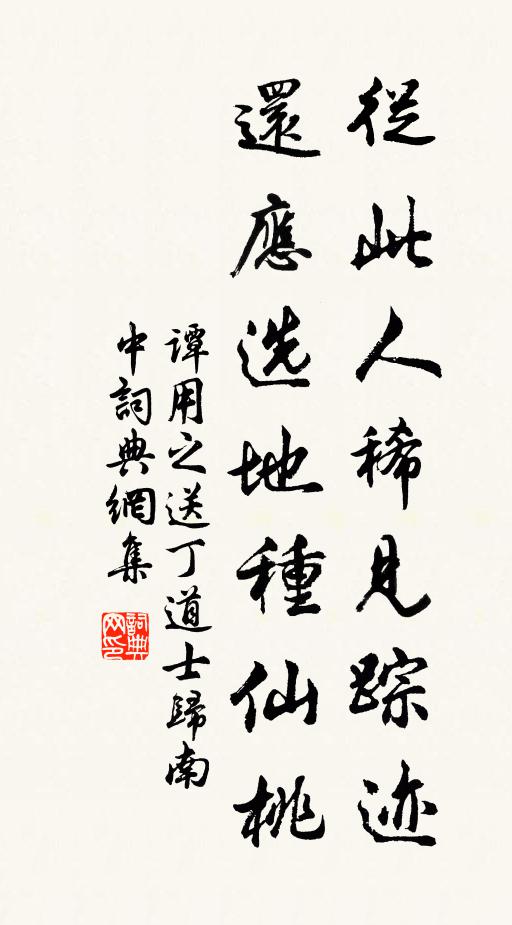 從此人稀見踪迹
還應选地種仙桃
谭用之送丁道士歸南
中詞典網集
詞典网印